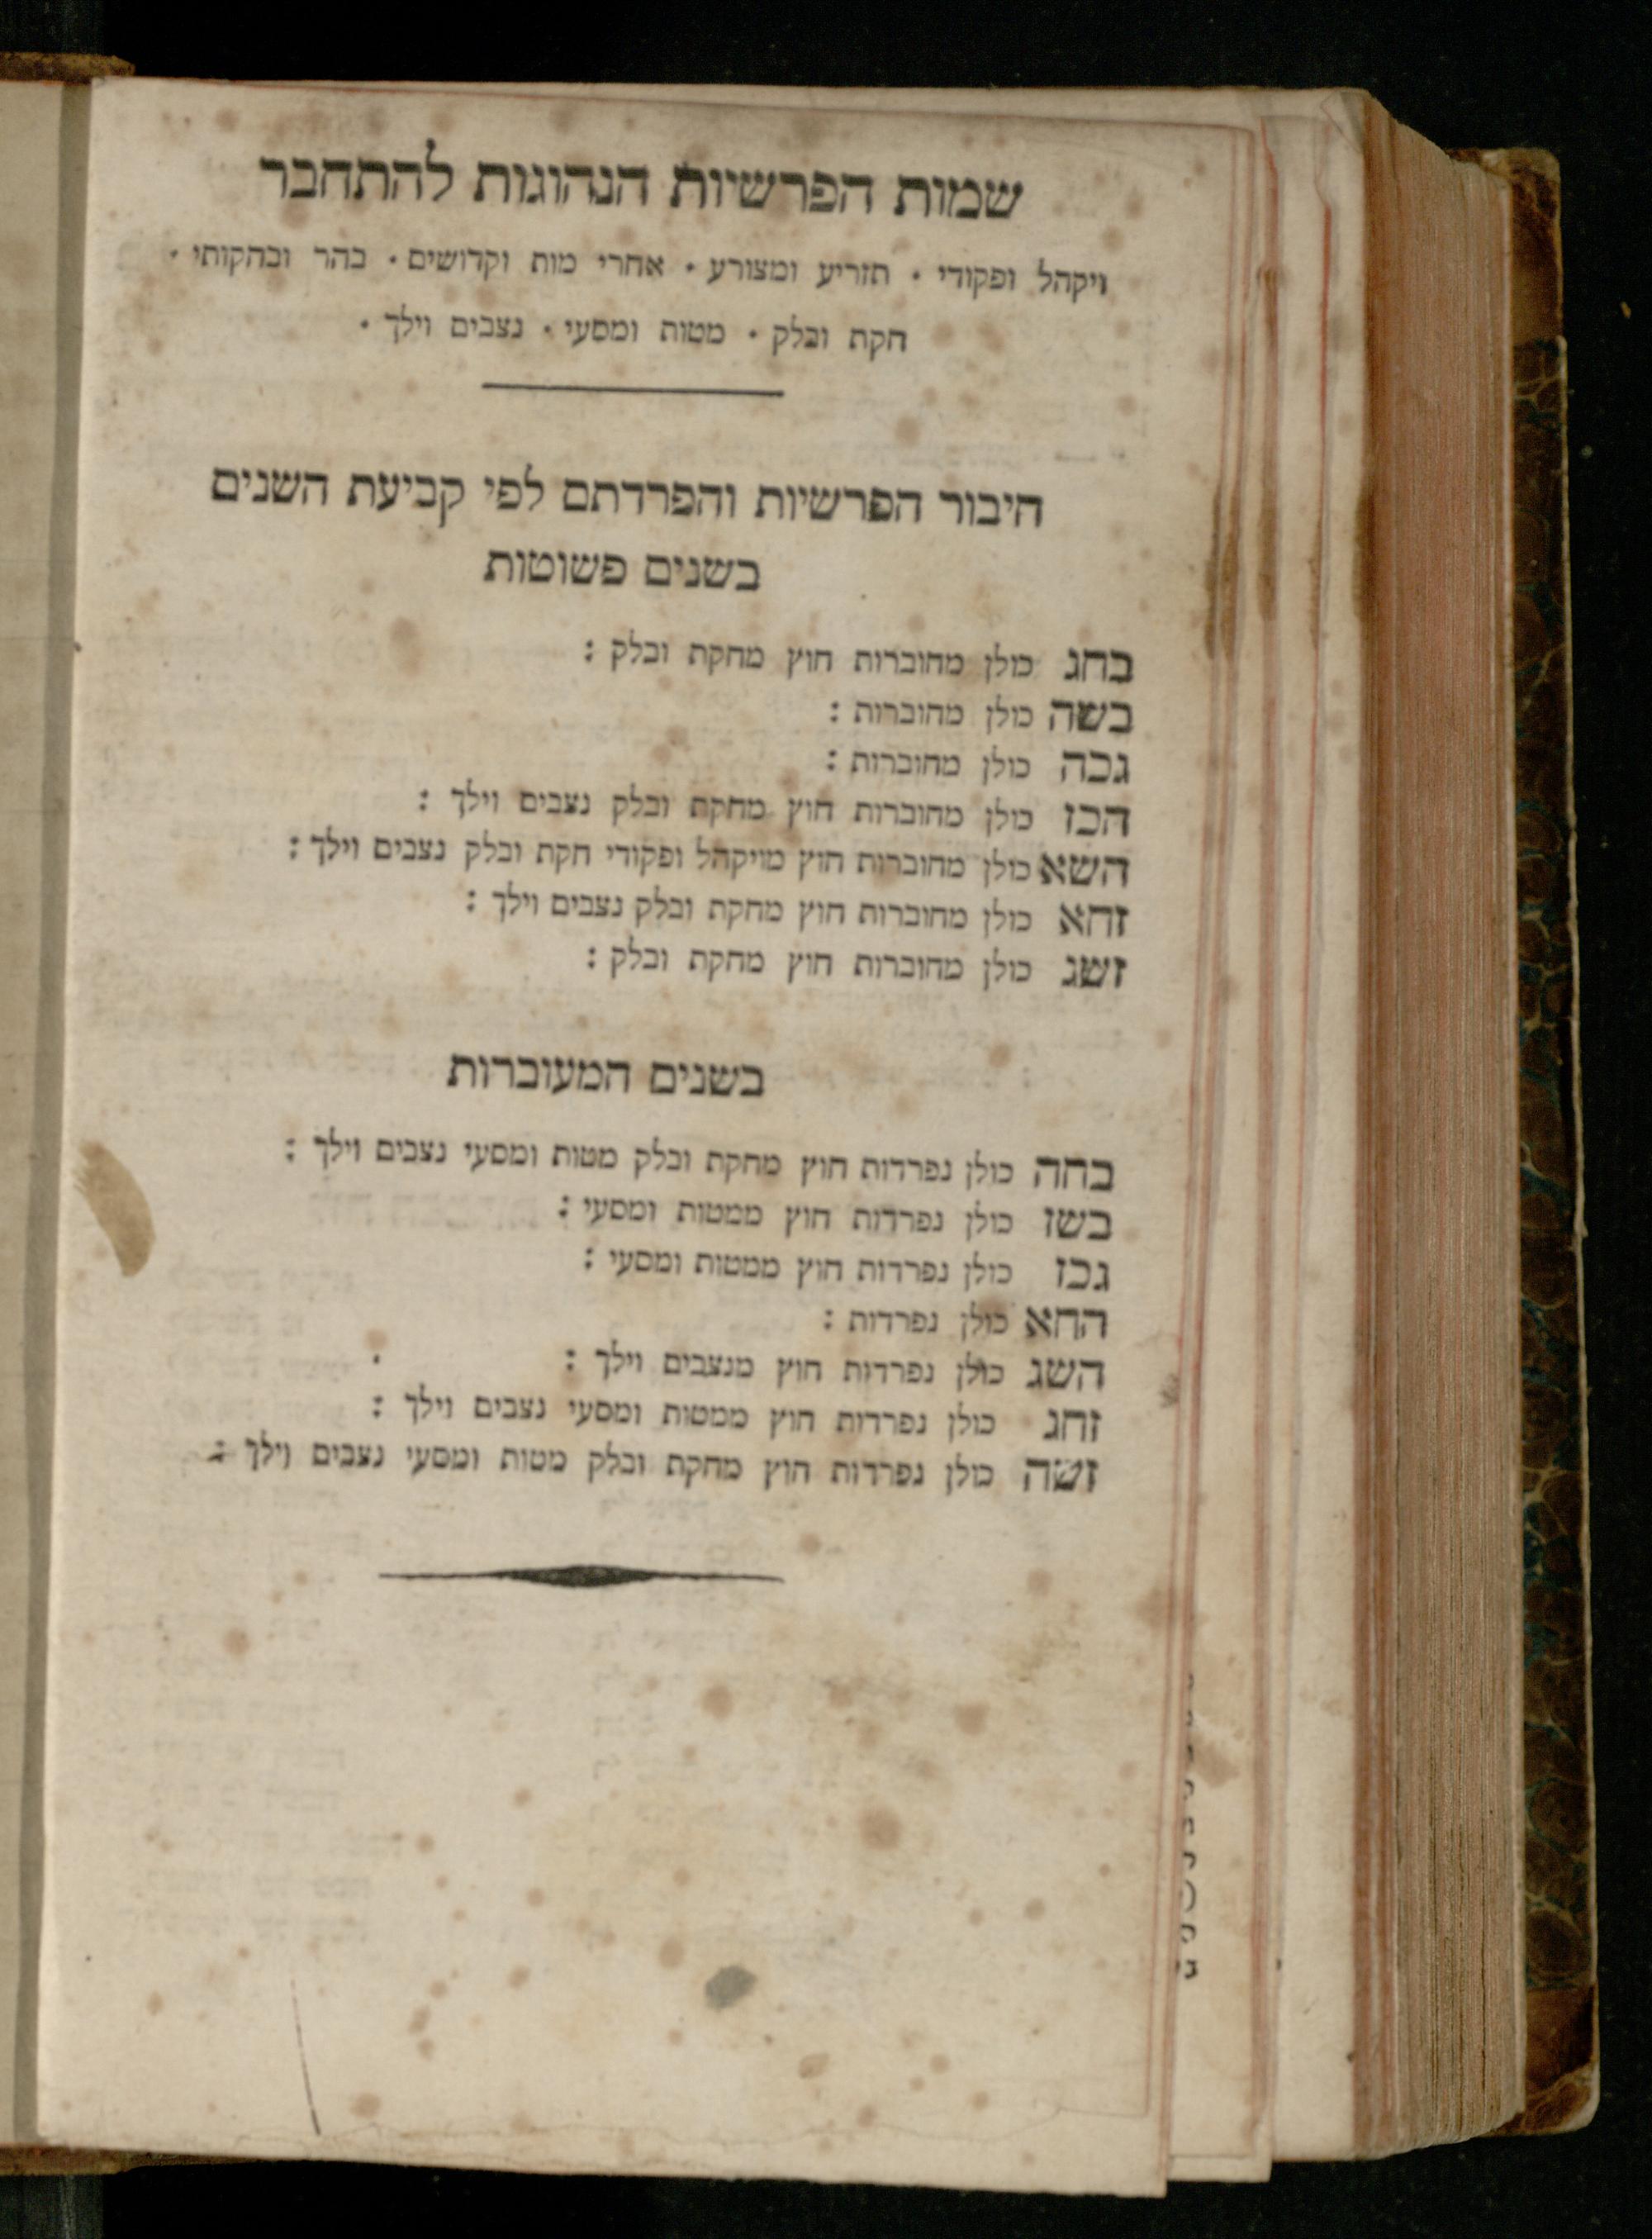 שמות הפרשיות הנהוגות להתחבר
ויקהל ופקודי · תזריע ומצורע · אחרי מות וקדושים · בהר ובחקותי ·
חקת ובלק · מטות ומסעי · נצבים וילך ·
חיבור הפרשיות והפרדתם לפי קביעת השנים
בשנים פשוטות
בחג כולן מחוברות חוץ מחקת ובלק :
בשה כולן מחוברות :
גכה כולן מחוברות :
הכז כולן מחוברות חוץ מחקת ובלק נצבים וילך :
השא כולן מחוברות חוץ מויקהל ופקודי חקת ובלק נצבים וילך :
זחא כולן מחוברות חוץ מחקת ובלק נצבים וילך :
זשג כולן מחוברות חוץ מחקת ובלק :
בשנים המעוברות
בחה כולן נפרדות חוץ מחקת ובלק מטות ומסעי נצבים וילך :
בשז כולן נפרדות חוץ ממטות ומסעי :
גכז כולן נפרדות חוץ ממטות ומסעי :
החא כולן נפרדות :
השג כולן נפרדות חוץ מנצבים וילך :
זחג כולן נפרדות חוץ ממטות ומסעי נצבים וילך :
זשה כולן נפרדות חוץ מחקת ובלק מטות ומסעי נצבים וילך :